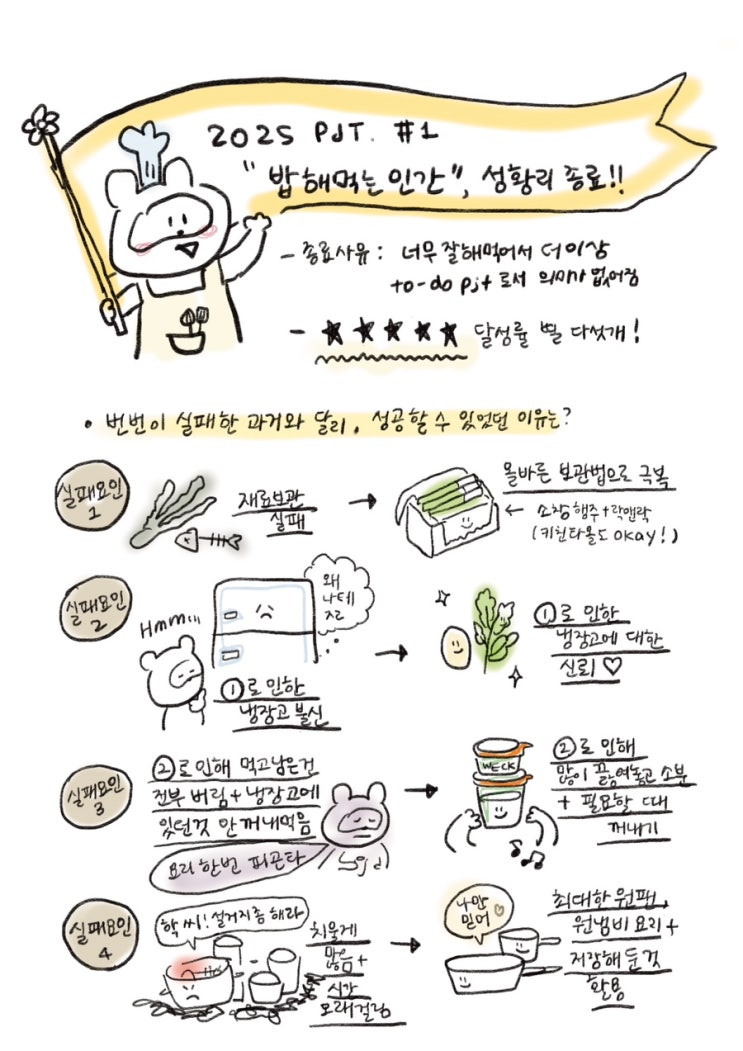 2025 PJT. #1
"밥해먹는 인간", 성황리 종료!!
- 종료사유 : 너무 잘해먹어서 더이상
to-do pjt로서 의미가 없어짐
- ★★★★★ 달성률 별 다섯개!
• 번번이 실패한 과거와 달리, 성공할 수 있었던 이유는?
실패요인
1
재료보관
실패
→
올바른 보관법으로 극복
← 소창행주+락앤락
(키친타올도 okay!)
실패요인
2
Hmm...
왜
나테
즈ㄹ
①로 인한
냉장고 불신
→
①로 인한
냉장고에 대한
신뢰 ♡
실패요인
3
②로 인해 먹고남은건
전부 버림+냉장고에
있던것 안꺼내먹음
요리 한번 피곤타
→
WECK
②로 인해
많이 끓여놓고 소분
+ 필요할 때
꺼내기
실패요인
4
학씨! 설거지좀 해라
치울게
많음+
시간
오래걸림
→
나만
믿어♡
최대한 원팬,
원냄비 요리+
저장해 둔것
활용